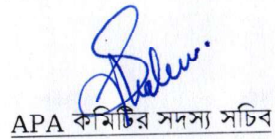 APA কমিটির সদস্য সচিব